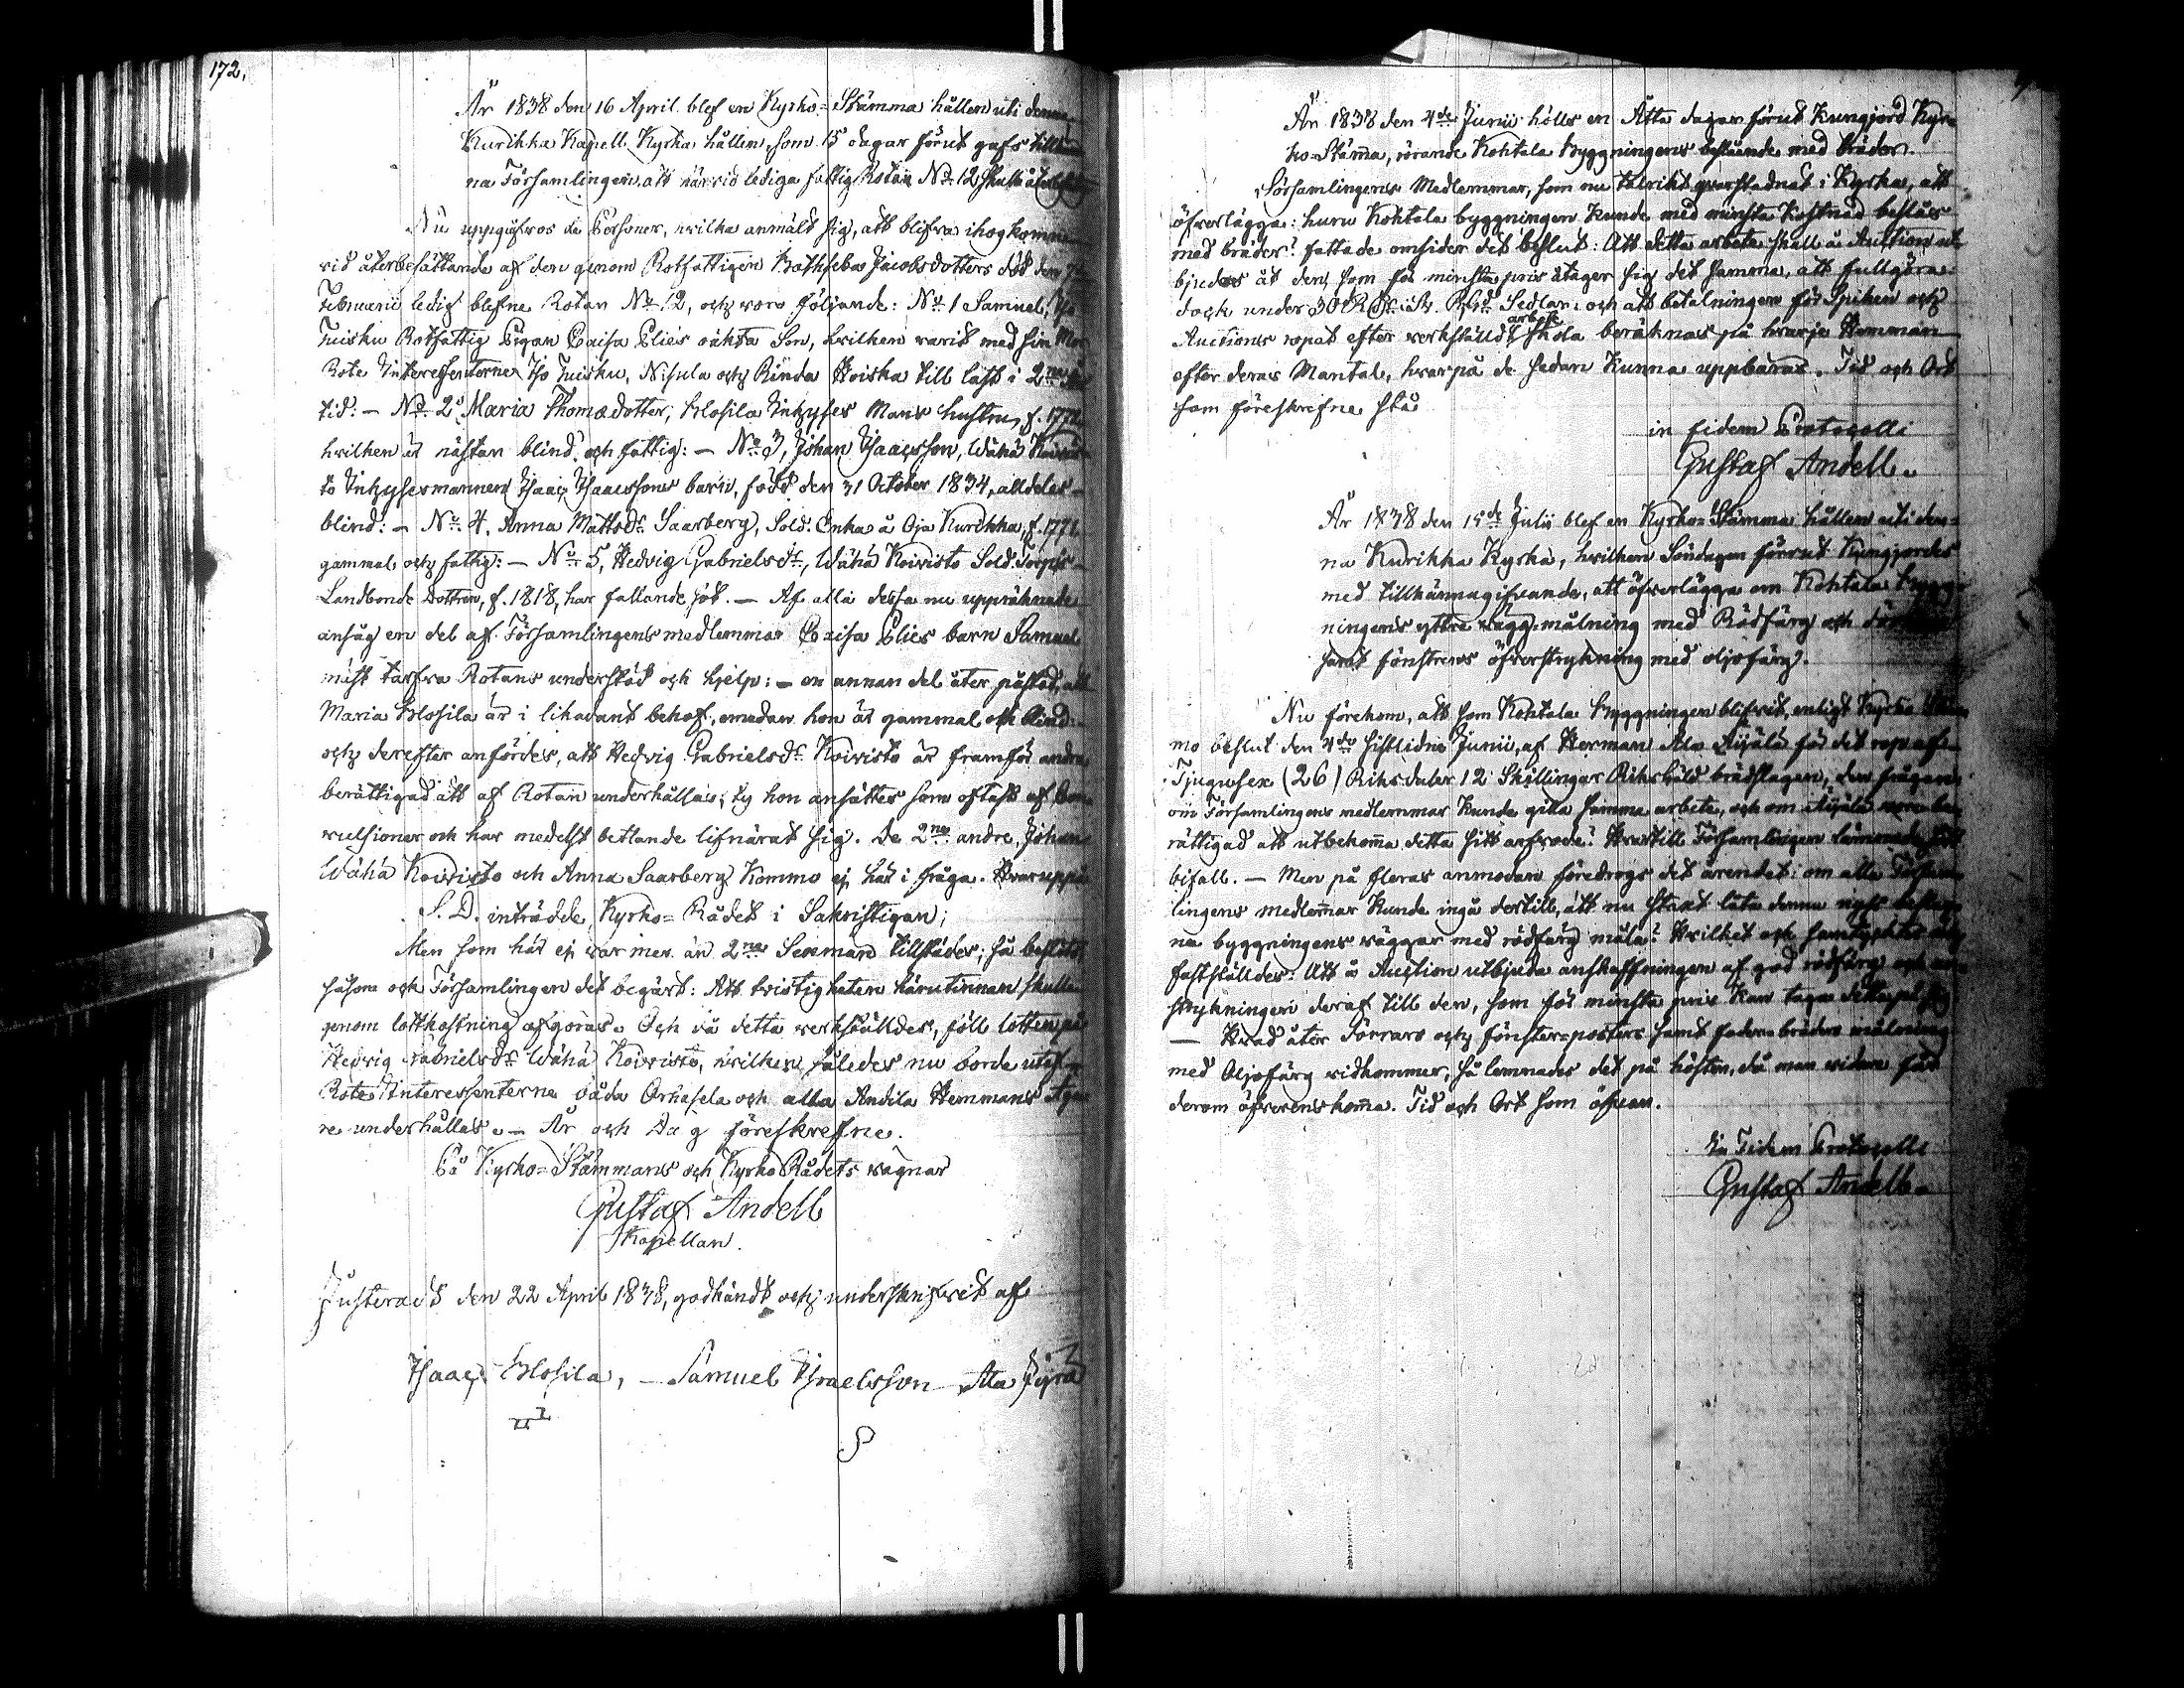 172.
År 1838 den 16 April blef en Kyrko=Stämma hållen uti denna
Kurikka Kapell Kyrka hållen, som 15 dagar förut gafs tillkän
na Församlingen, att närvid lediga fattig Rotan No 12 skulle återbesättas
Nu uppgåfvos de Personer, hvilka anmält sig, att blifva ihogkomne
vid återbesättande af den genom Rotfattigen Bathseba Jacobsdotters död den
Februarii ledig blefne Rotan No 12, och voro följande: No 1 Samuel, Yli
Tuisku Rotfattig Pigan Caisa Elies oäkta Son, hvilken varit med sin Mor
Rote Interessenterne Yli Tuisku, Nisula och Rinda Hoiska till last i 2ne års
tid: – No 2 Maria Thomædotter, Klosila Inhyses Mans hustru, f. 1772
hvilken är nästan blind och fattig: – No 3, Johan Isaacsson, Wähä Koivis
to Inhysesmannen Isaac Isaacssons barn, född den 31 October 1834, alldeles
blind: – No 4. Anna Mattsdr Saarberg, Sold. Enka å Oja Kurikka, f. 1771.
gammal och fattig: – No 5, Hedvig Gabrielsdr, Wähä Koivisto Sold. Torps
Landbonde Dottren, f. 1818, har fallande sot. – Af alla dessa nu uppräknade
ansåg en del af Församlingens medlemmar Caisa Elies barn Samuel
mäst tarfva Rotans understöd och hjelp: – en annan del åter påstod, att
Maria Klosila är i likadant behof, emedan hon är gammal och blind:
och derefter anfördes, att Hedvig Gabrielsdr Koivisto är framför andra
berättigad att af Rotan underhållas; ty hon ansättes som oftast af Con
vulsioner och har medelst betlande lifnärat sig. De 2ne andre, Johan
Wähä Koivisto och Anna Saarberg kommo ej här i fråga. Hvaruppå
S. D. inträdde Kyrko=Rådet i Sakristigan;
Men som här ej var mer än 2ne Sexmän tillstädes; så beslöts,
såsom och Församlingen det begärt: Att tvistigheten härutinnan skulle
genom lottkastning afgöras. Och då detta verkställdes, föll lotten på
Hedvig Gabrielsdr Wähä Koivisto, hvilken således nu borde utaf
Rote Interessenterne båda Orhasela och alla Andila Hemmans ägan
re underhållas. – År och Dag föreskrefne.
På Kyrko=Stämmans och Kyrko Rådets vägnar
Gustaf Andell
Kapellan.
Justeradt den 22 April 1838, godkändt och underskrifvit af
Isaac Klosila, – Samuel Israelsson Ala Jyrä
År 1838 den 4de Junii hölls en Åtta dagar förut kungjord Kyr=
ko=Stämma, rörande Kohtala byggningens beslående med bräder.
Församlingens Medlemmar, som nu talrikt qvarstadnat i Kyrka, att
öfverlägga: huru Kohtala byggningen kunde med minsta kostnad beslås
med bräder? fattade omsider det beslut: Att detta arbete skall å Auction ut=
bjudas åt den, som för minsta pris åtager sig det samma, att fullgöra:
dock under 30 R. Sv. Rgd. Sedlar: och att betalningen för Spiken och
Auctions ropet efter verkställdt arbete skola beräknas på hvarje Hemman
efter deras Mantal, hvarpå de sedan kunna uppbäras. Tid och Ort
som föreskrefne stå
in fidem Protocolli
Gustaf Andell.
År 1838 den 15de Julii blef en Kyrko=Stämma hållen uti den=
na Kurikka Kyrka, hvilken Söndagen förrut kungjordes
med tillkännagifvande, att öfverlägga om Kohtala bygg
ningens yttre vägg=målning med Rödfärg och
samt fönstrens öfverstrykning med oljofärg.
Nu förekom, att som Kohtala byggningen blifvit, enligt Kyrko Stäm
mo beslut den 4de sistlidne Junii, af Herman Ala Äijälä för det rop af
Tjugusex (26) Riksdaler 12 Skillingar Riksgäld brädslagen, den frågan:
om Församlingens medlemmar kunde gilla samma arbete, och om Äijälä vore be
rättigad att utbekomma detta sitt arfvode? Hvartill Församlingen lämnade sitt
bifall. – Men på fleras anmodan föredrogs det ärendet: om alla Försam
lingens medlemmar kunde ingå dertill, att nu straxt låta denna nyss beslag
na byggningens väggar med rödfärg måla? Hvilket och samtycktes och
fastställdes: Att å Auction utbjuda anskaffningen af god rödfärg och
strykningen deraf till den, som för minsta pris kan taga detta på sig
– Hvad åter Dörrars och fönster=posters samt foder=bräders målning
med Oljofärg vidkommer, så lemnades det på hösten, då man vidare får
derom öfverenskomma. Tid och Ort som ofvan.
In Fidem Protocolli
Gustaf Andell.